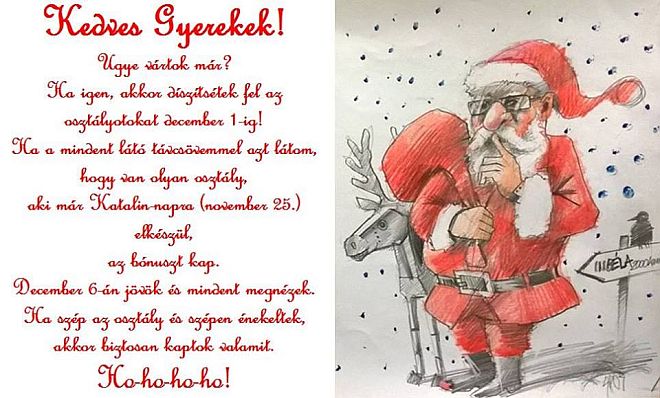 Kedves Gyerekek!
Ugye vártok már?
Ha igen, akkor díszítsétek fel az
osztályotokat december 1-ig!
Ha a mindent látó távcsövemmel azt látom,
hogy van olyan osztály,
aki már Katalin-napra (november 25.)
elkészül,
az bónuszt kap.
December 6-án jövök és mindent megnézek.
Ha szép az osztály és szépen énekeltek,
akkor biztosan kaptok valamit.
Ho-ho-ho-ho!
BÉLA